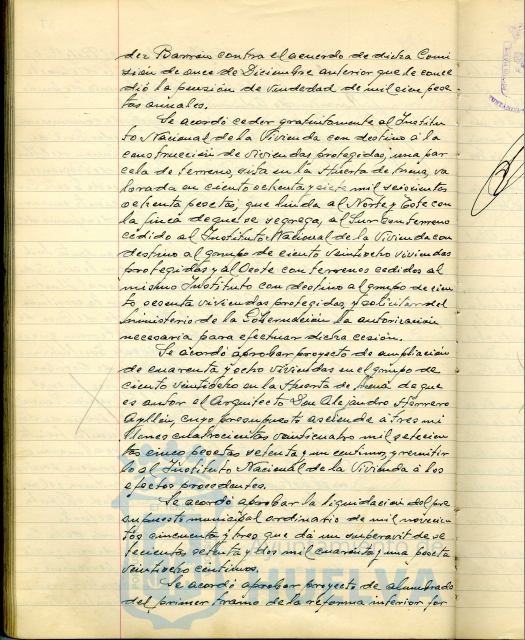 dez Barrán contra el acuerdo de dicha Comi
sión de once de Diciembre anterior que le conce
dió la pensión de viudedad de mil cien pese
tas anuales.
Se acordó ceder gratuitamente al Institu
to Nacional de la Vivienda con destino á la
construcción de viviendas protegidas, una par
cela de terreno, sita en la Huerta de Mena, va
lorada en ciento ochenta y siete mil seiscientas
ochenta pesetas, que linda al Norte y Este con
la finca de que se segrega, al Sur con terreno
cedido al Instituto Nacional de la Vivienda con
destino al grupo de ciento veintiocho viviendas
protegidas y al Oeste con terrenos cedidos al
mismo Instituto con destino al grupo de cien
to sesenta viviendas protegidas, y solicitar del
Ministerio de la Gobernación la autorización
necesaria para efectuar dicha cesión.
Se acordó aprobar proyecto de ampliación
de cuarenta y ocho viviendas en el grupo de
ciento veintiocho en la Huerta de Mena de que
es autor el Arquitecto Don Alejandro Herrero
Ayllón, cuyo presupuesto asciende á tres mi
llones cuatrocientas veinticuatro mil setecien
tas cinco pesetas setenta y un centimos, y remitir
lo al Instituto Nacional de la Vivienda á los
efectos procedentes.
Se acordó aprobar la liquidación del pre
supuesto municipal ordinario de mil novecien
tos cincuenta y tres que dá un superavit de se
tecientas setenta y dos mil cuarenta y una peseta
veintiocho centimos.
Se acordó aprobar proyecto de alumbrado
del primer tramo de la reforma interior, por
HUELVA